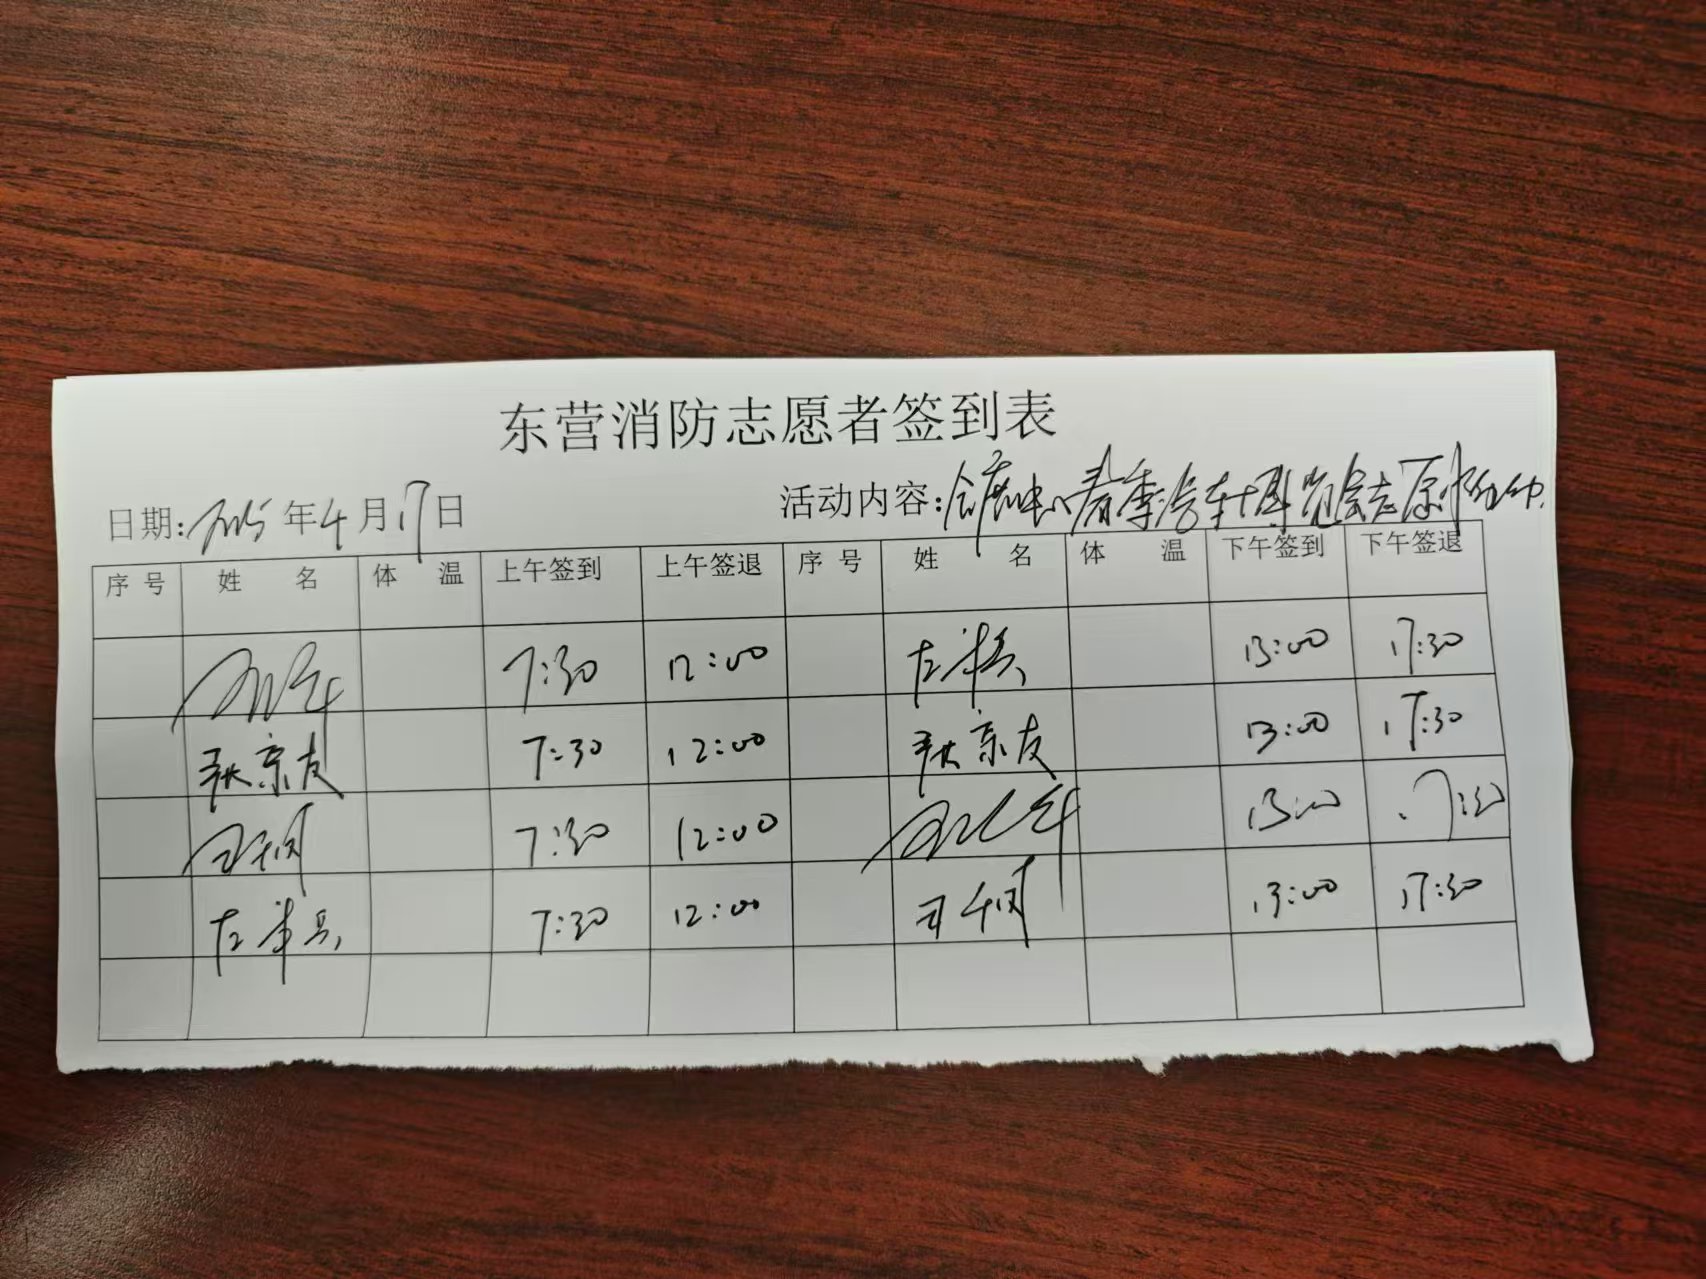 东营消防志愿者签到表
日期: 2025 年 4 月 17 日 活动内容: 会展中心春季汽车博览会志愿
序号 姓 名 体 温 上午签到 上午签退 序号 姓 名 体 温 下午签到 下午签退
7:30 12:00 左 13:00 17:30
京友 7:30 12:00 京友 13:00 17:30
7:30 12:00 13:00 17:30
左 7:30 12:00 13:00 17:30